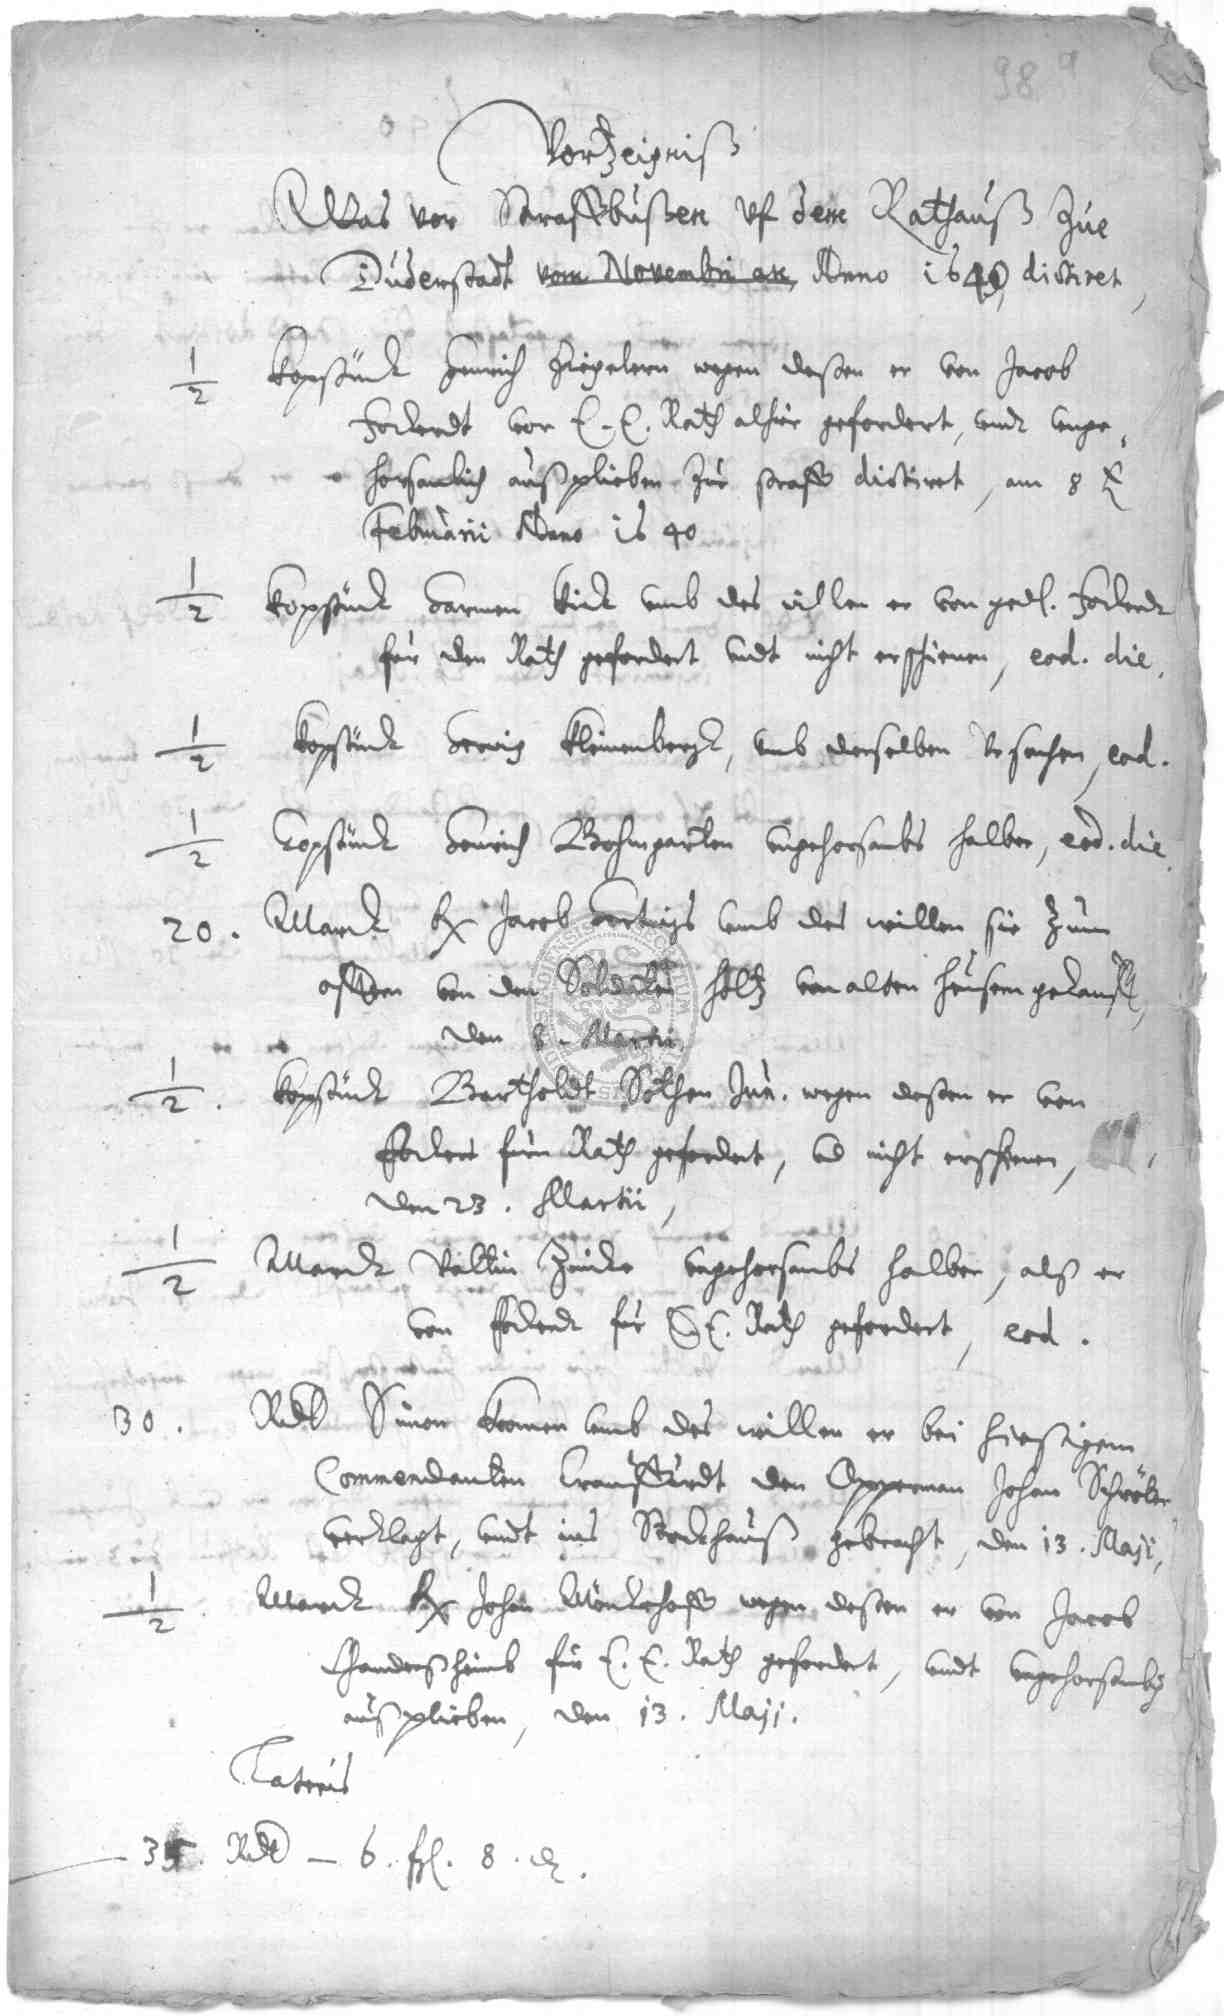 98 a
Vorzeigniß
Was vor Straffbußen vf dem Rathauß Zue
Duderstadt vom Novembri an Anno 1640 dictiret,
1/2 Kopstück Henrich Ziegelern wegen deßen er von Jacob
Forkerdt vor E. E. Rath alhier gefordert, vndt vnge,
horsamlich außplieben zur straff dictiret, am 8
Februarii Anno 1640
1/2 Kopstück Harmen umb des willen er von gedl. Forkerdt
für den Rath gefordert undt nicht erschienen, eod. die.
1/2 Kopstück Herwig Kleinenbergk, umb derselben Vrsachen, eod.
1/2 Kopstück Henrich Bohmgarten ungehorsambs halber, eod. die
20. Marck Jacob Hartwigs umb des willen sie zum
offtern von den Soldaten holtz von alten heusern gekaufft,
den 8. Martii
1/2. Kopstück Bartholdt Sothen Jun. wegen deßen er von
Forkerdt fürn Rath gefordert, vnd nicht erschienen,
den 23. Martii,
1/2 Marck Valtin Zincke ungehorsambs halber, alß er
von Forkerdt für E. E. Rath gefordert, eod.
30. Rdl Simon umb des willen er bei hiesigem
Commendanten Crauffurdt den Opperman Johan Schröter
verklagt, undt ins Stockhauß gebracht, den 13. Maji,
1/2 Marck Johan Mönckehoff wegen deßen er von Jacob
Ganderßheimb für E. E. Rath gefordert, undt ungehorsamblich
außplieben, den 13. Maji.
Lateris
35. Rdl – 6. ßl. 8. d.